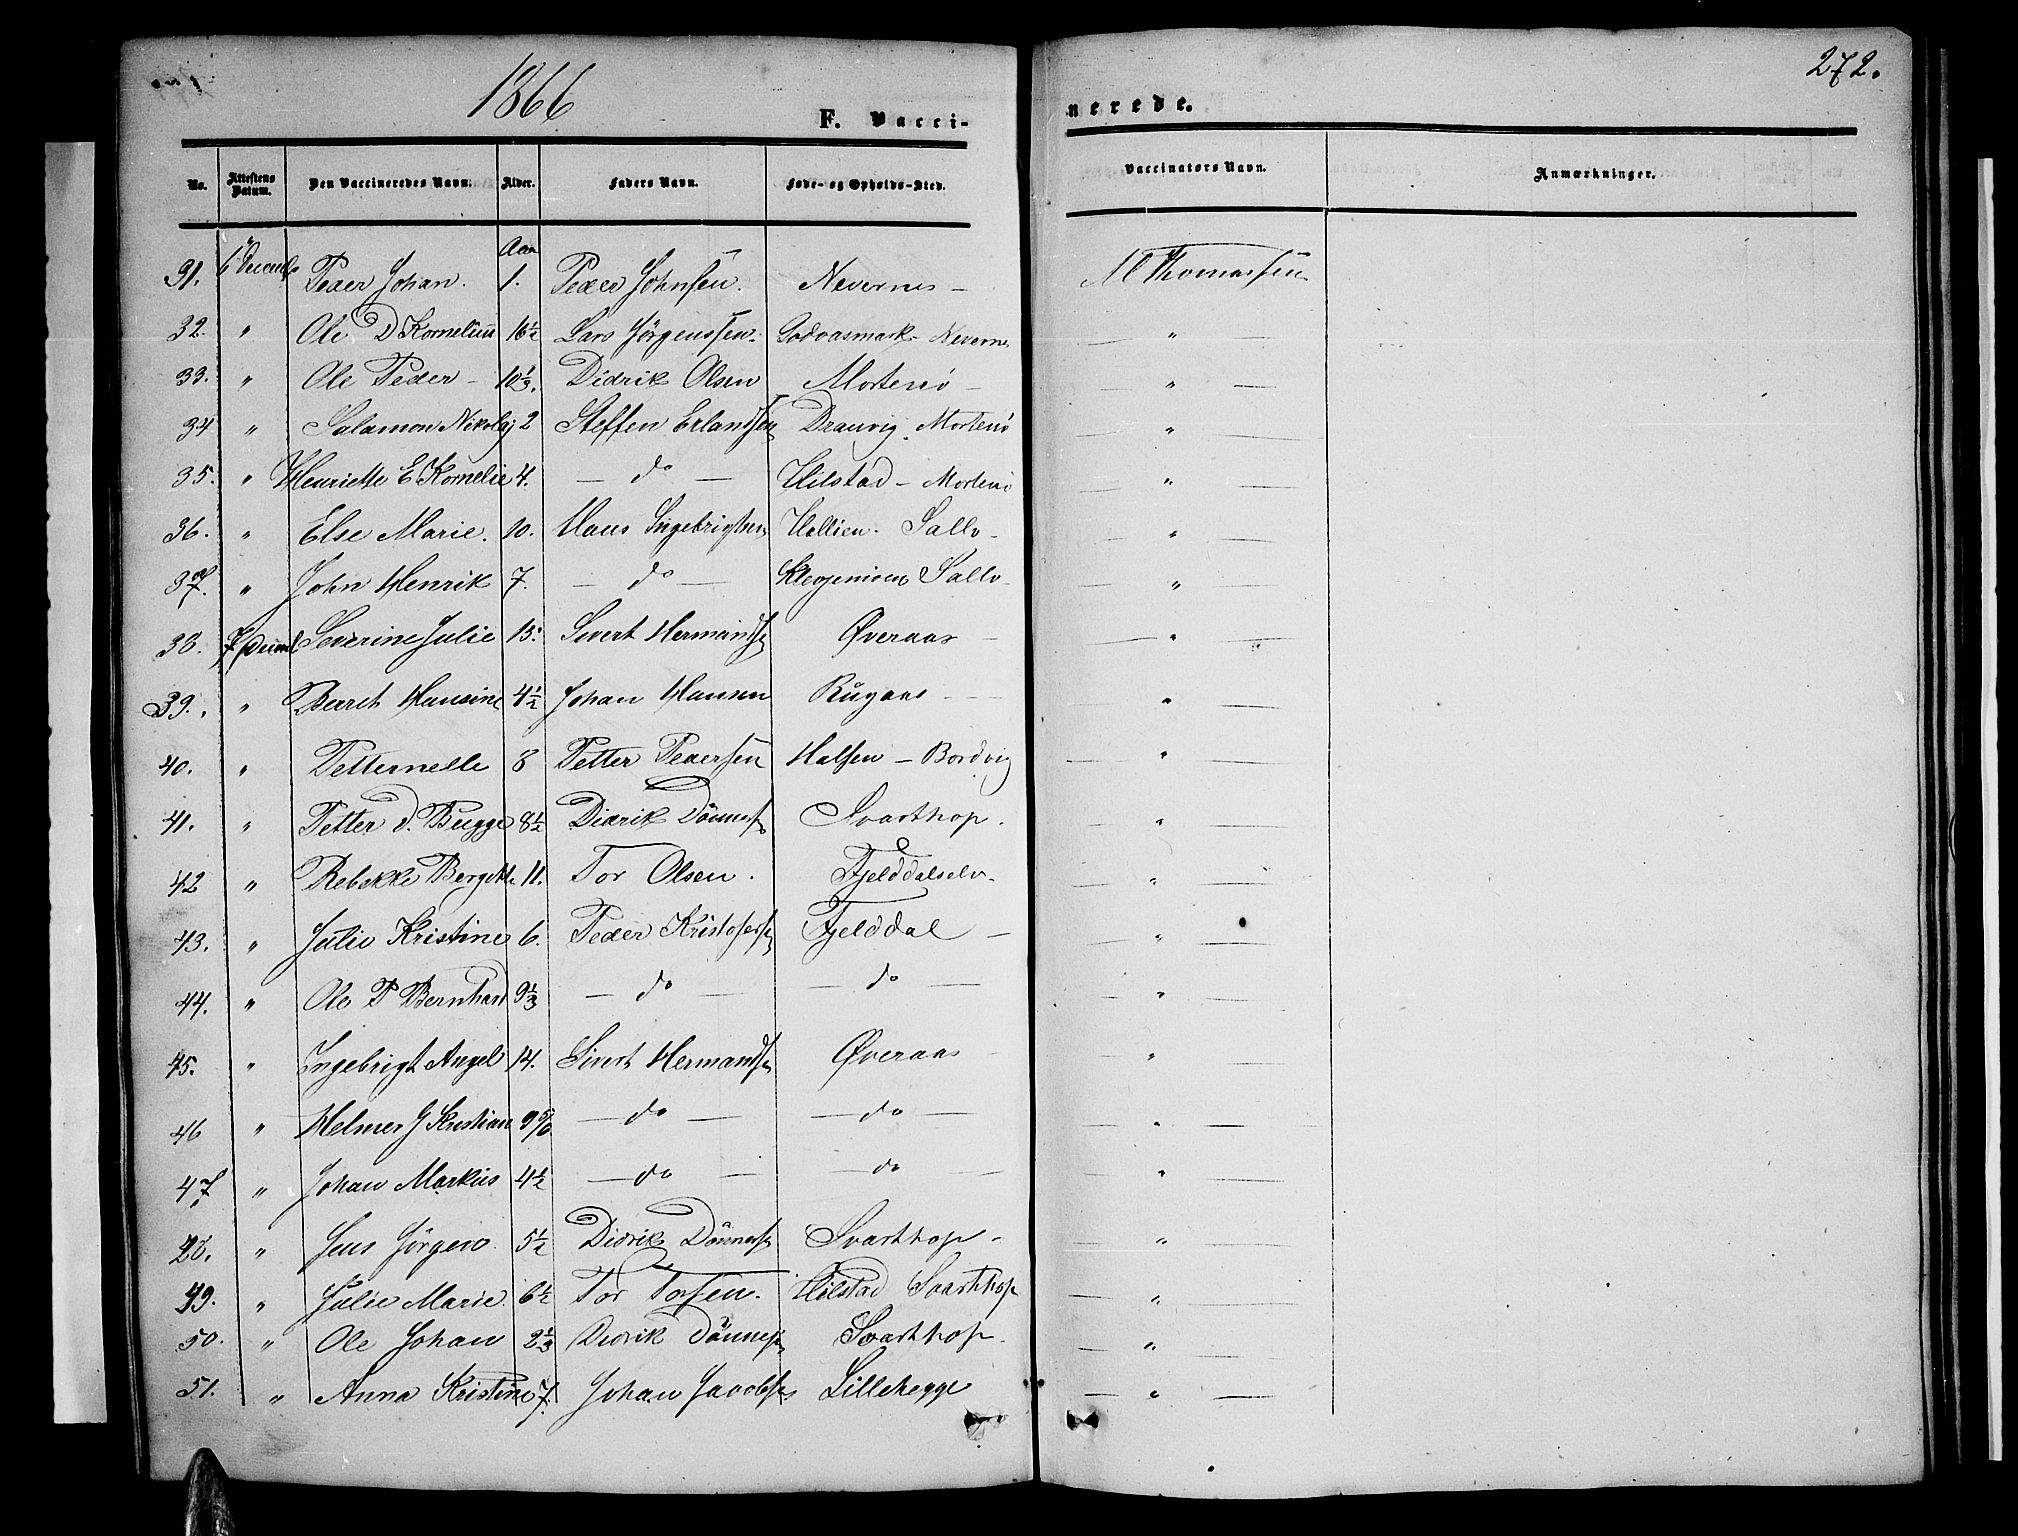 1866
272.
F. Vacci-
nerede.
No. Attestens Datum. Den Vaccineredes Navn. Alder. Faders Navn. Føde- og Opholds-Sted. Vaccinators Navn. Anmærkninger.
31. 6 Decemb Peder Johan. Aar 1. Peder Johnsen. Nevernes - M Thomassen
32. " Ole D Kornelius 16½ Lars Jörgenssen. Godvasmark - Nevernes — " —
33. " Ole Peder - 10⅓. Didrik Olsen Mortenö - — " —
34 " Salamon Nikolaj 2 Steffen Erlandsen Dranvig. Mortenö — " —
35. " Henriette E Kornelie 4. — do — Hilstad - Mortenö — " —
36. " Else Marie. 10. Hans Ingebrigtsen Hellien. Sallv - — " —
37. " John Henrik 7. — do — Klevjemoen Sallv - — " —
38. 7 Decemb Severine Julie 15. Sivert Hermands Øveraas - — " —
39. " Beret Hansine 4½ Johan Hansen Rugaas - — " —
40. " Petternelle 8 Petter Pedersen Halsen - Bordvig — " —
41. " Petter d. Bugge 8½ Didrik Dönnes Svarthop. — " —
42 " Rebekke Bergitte 11. Tor Olsen. Fjelddalselv - — " —
43. " Julie Kristine 6. Peder Kristofers Fjelddal - — " —
44. " Ole P Bernhard 9⅓ — do — — do — — " —
45. " Ingebrigt Angel 14. Sivert Hermands Øveraas - — " —
46 " Helmer G Kristian 9 5/6 — do — — do — — " —
47. " Johan Markus 4½ — do — — do — — " —
48. " Jens Jörgen 5½ Didrik Dönnes Svarthop - — " —
49. " Julie Marie. 6½ Tor Torsen. Hilstad Svarthop — " —
50. " Ole Johan 2⅓ Didrik Dönnes Svarthop. — " —
51. " Anna Kristine 7. Johan Jacobs Lillehegge — " —